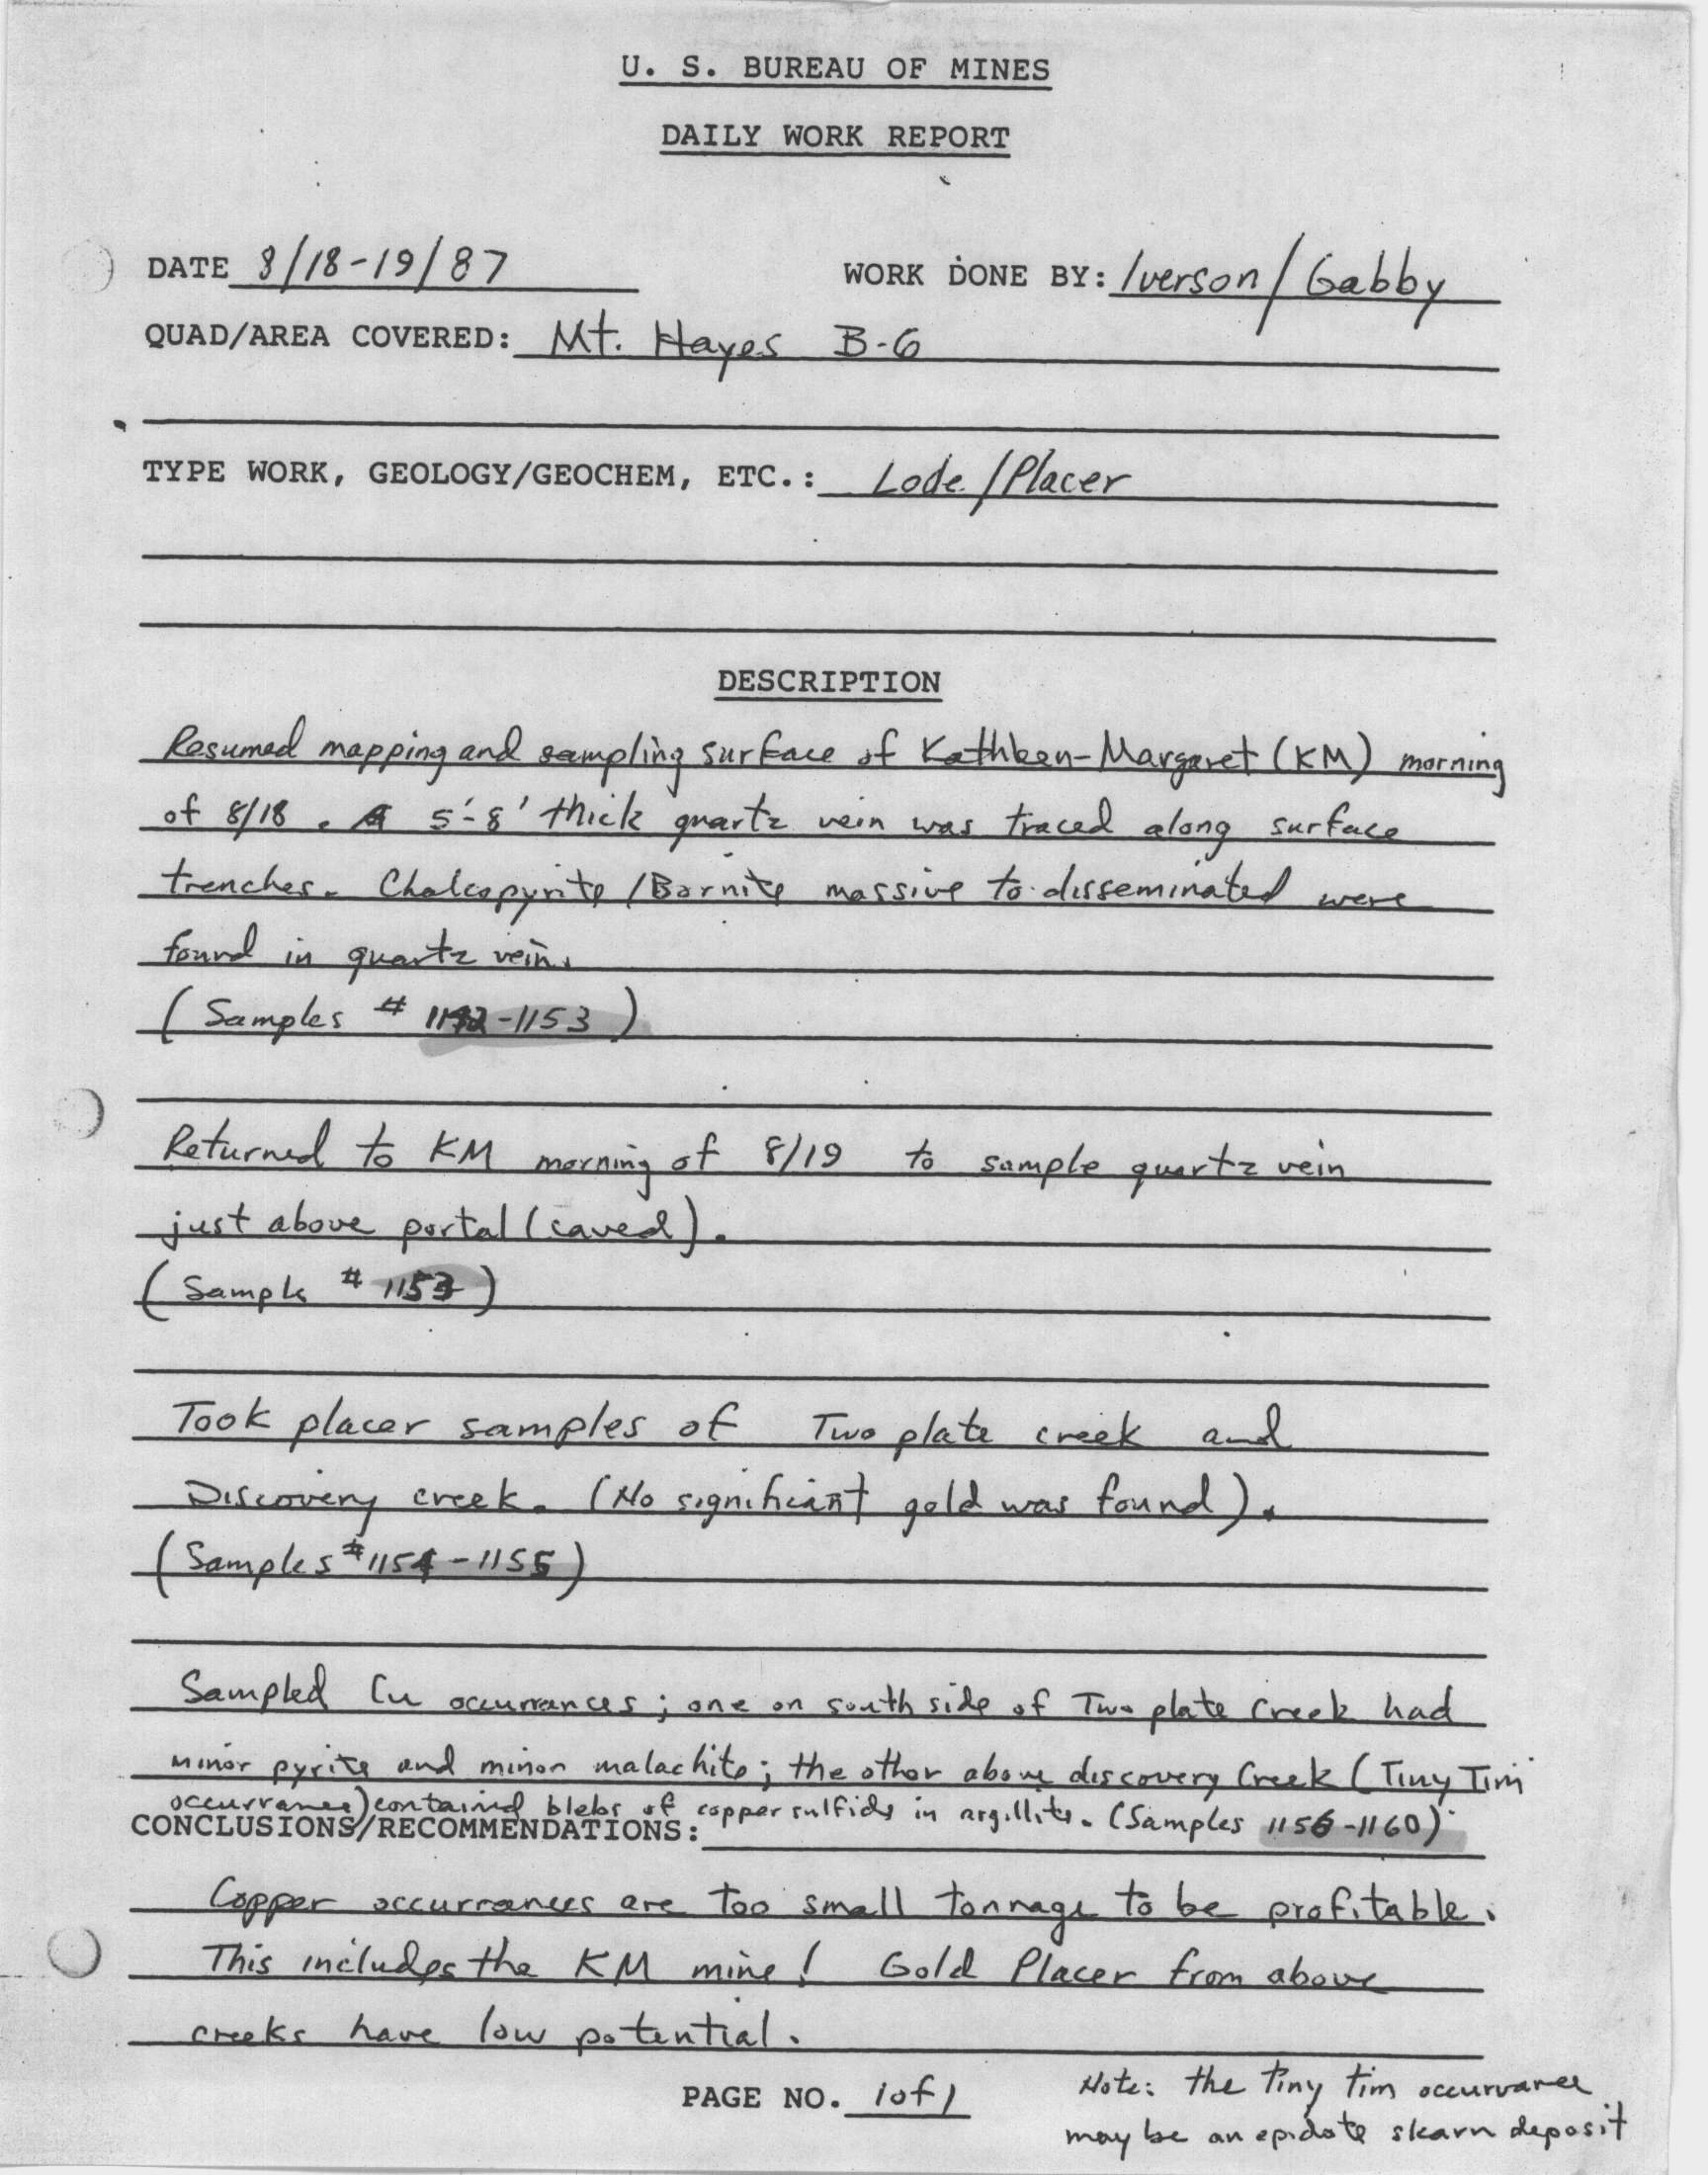 U. S. BUREAU OF MINES
DAILY WORK REPORT
DATE 8/18-19/87 WORK DONE BY: Iverson/Gabby
QUAD/AREA COVERED: Mt. Hayes B-6
TYPE WORK, GEOLOGY/GEOCHEM, ETC.: Lode/Placer
DESCRIPTION
Resumed mapping and sampling surface of Kathleen-Margaret (KM) morning
of 8/18. A 5'-8' thick quartz vein was traced along surface
trenches. Chalcopyrite/Bornite massive to disseminated were
found in quartz vein.
(Samples # -1153)
Returned to KM morning of 8/19 to sample quartz vein
just above portal (caved).
(Sample # 1153)
Took placer samples of Two plate creek and
Discovery creek. (No significant gold was found).
(Samples #1154-1155)
Sampled Cu occurrances; one on south side of Two plate Creek had
minor pyrite and minor malachite; the other above discovery Creek (Tiny Tim
occurrance) contained blebs of copper sulfide in argillite. (Samples 1156-1160)
CONCLUSIONS/RECOMMENDATIONS:
Copper occurrances are too small tonnage to be profitable.
This includes the KM mine! Gold Placer from above
creeks have low potential.
PAGE NO. 1 of 1
Note: the tiny tim occurrance
may be an epidote skarn deposit